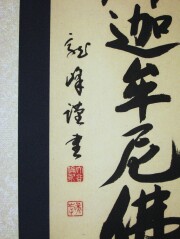 迦牟尼佛
龍峰謹書